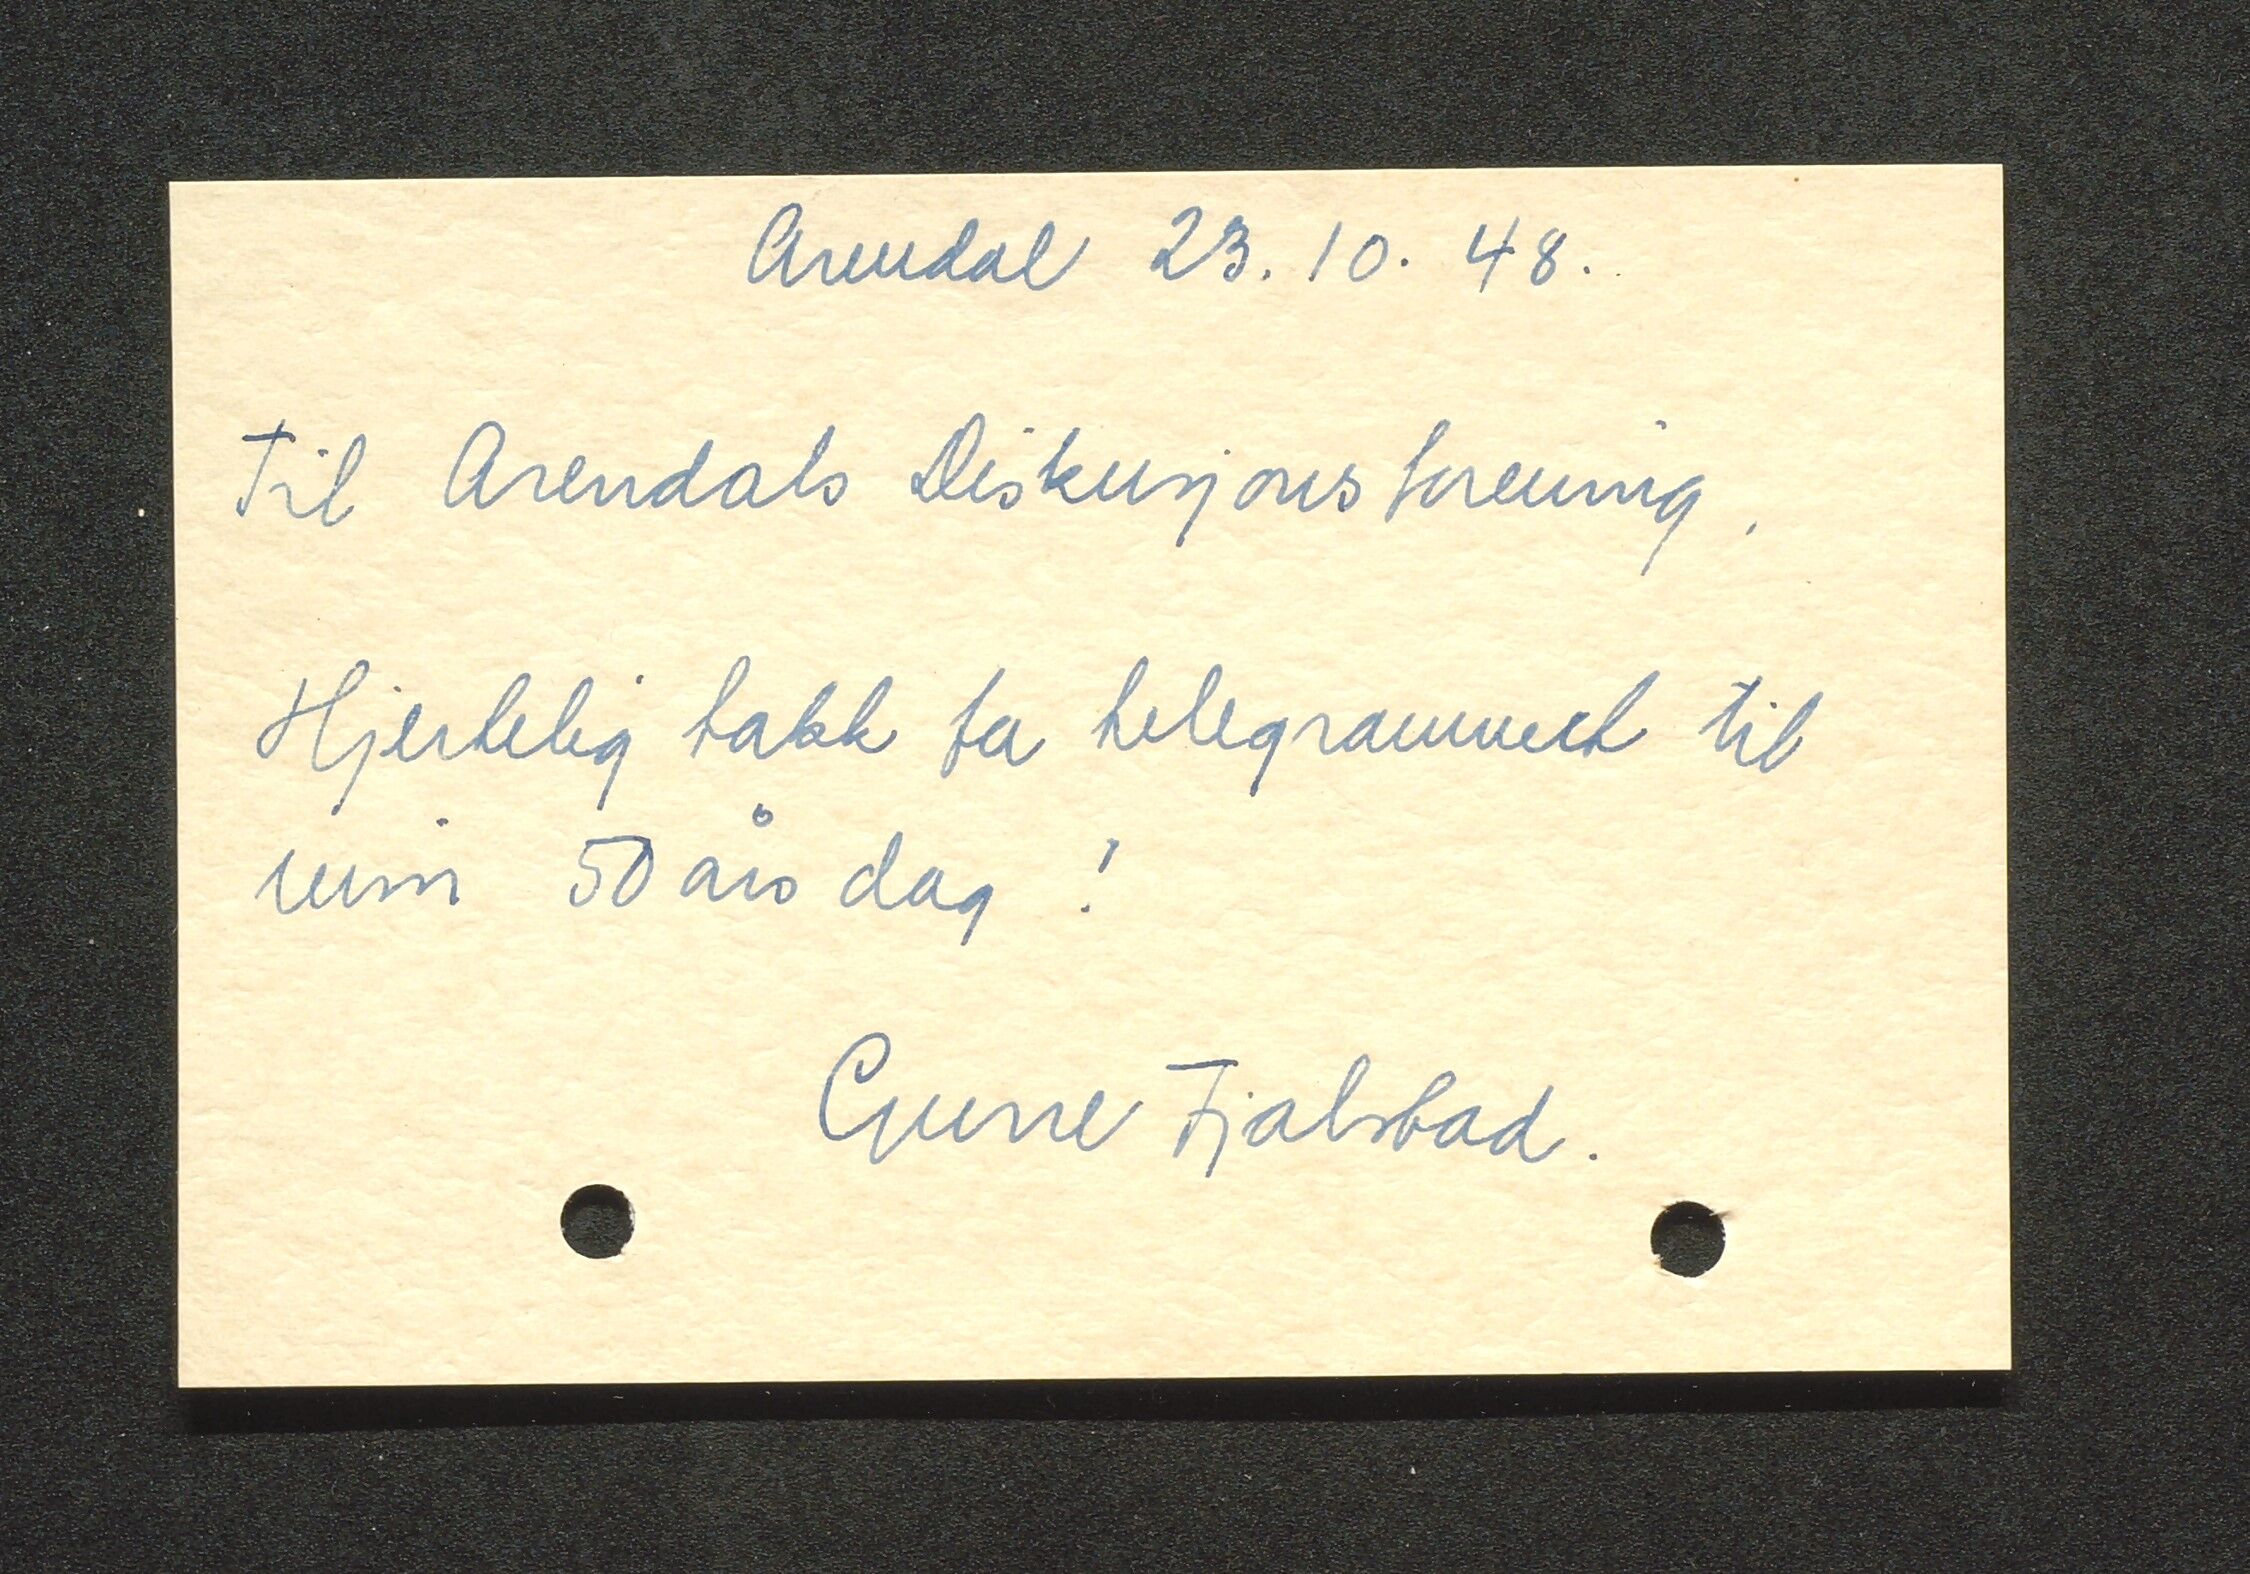 Arendal 23. 10. 48.
Til Arendals Diskusjonsforening,
Hjertelig takk for telegrammet til
min 50 års dag!
Gunne Fjalstad.